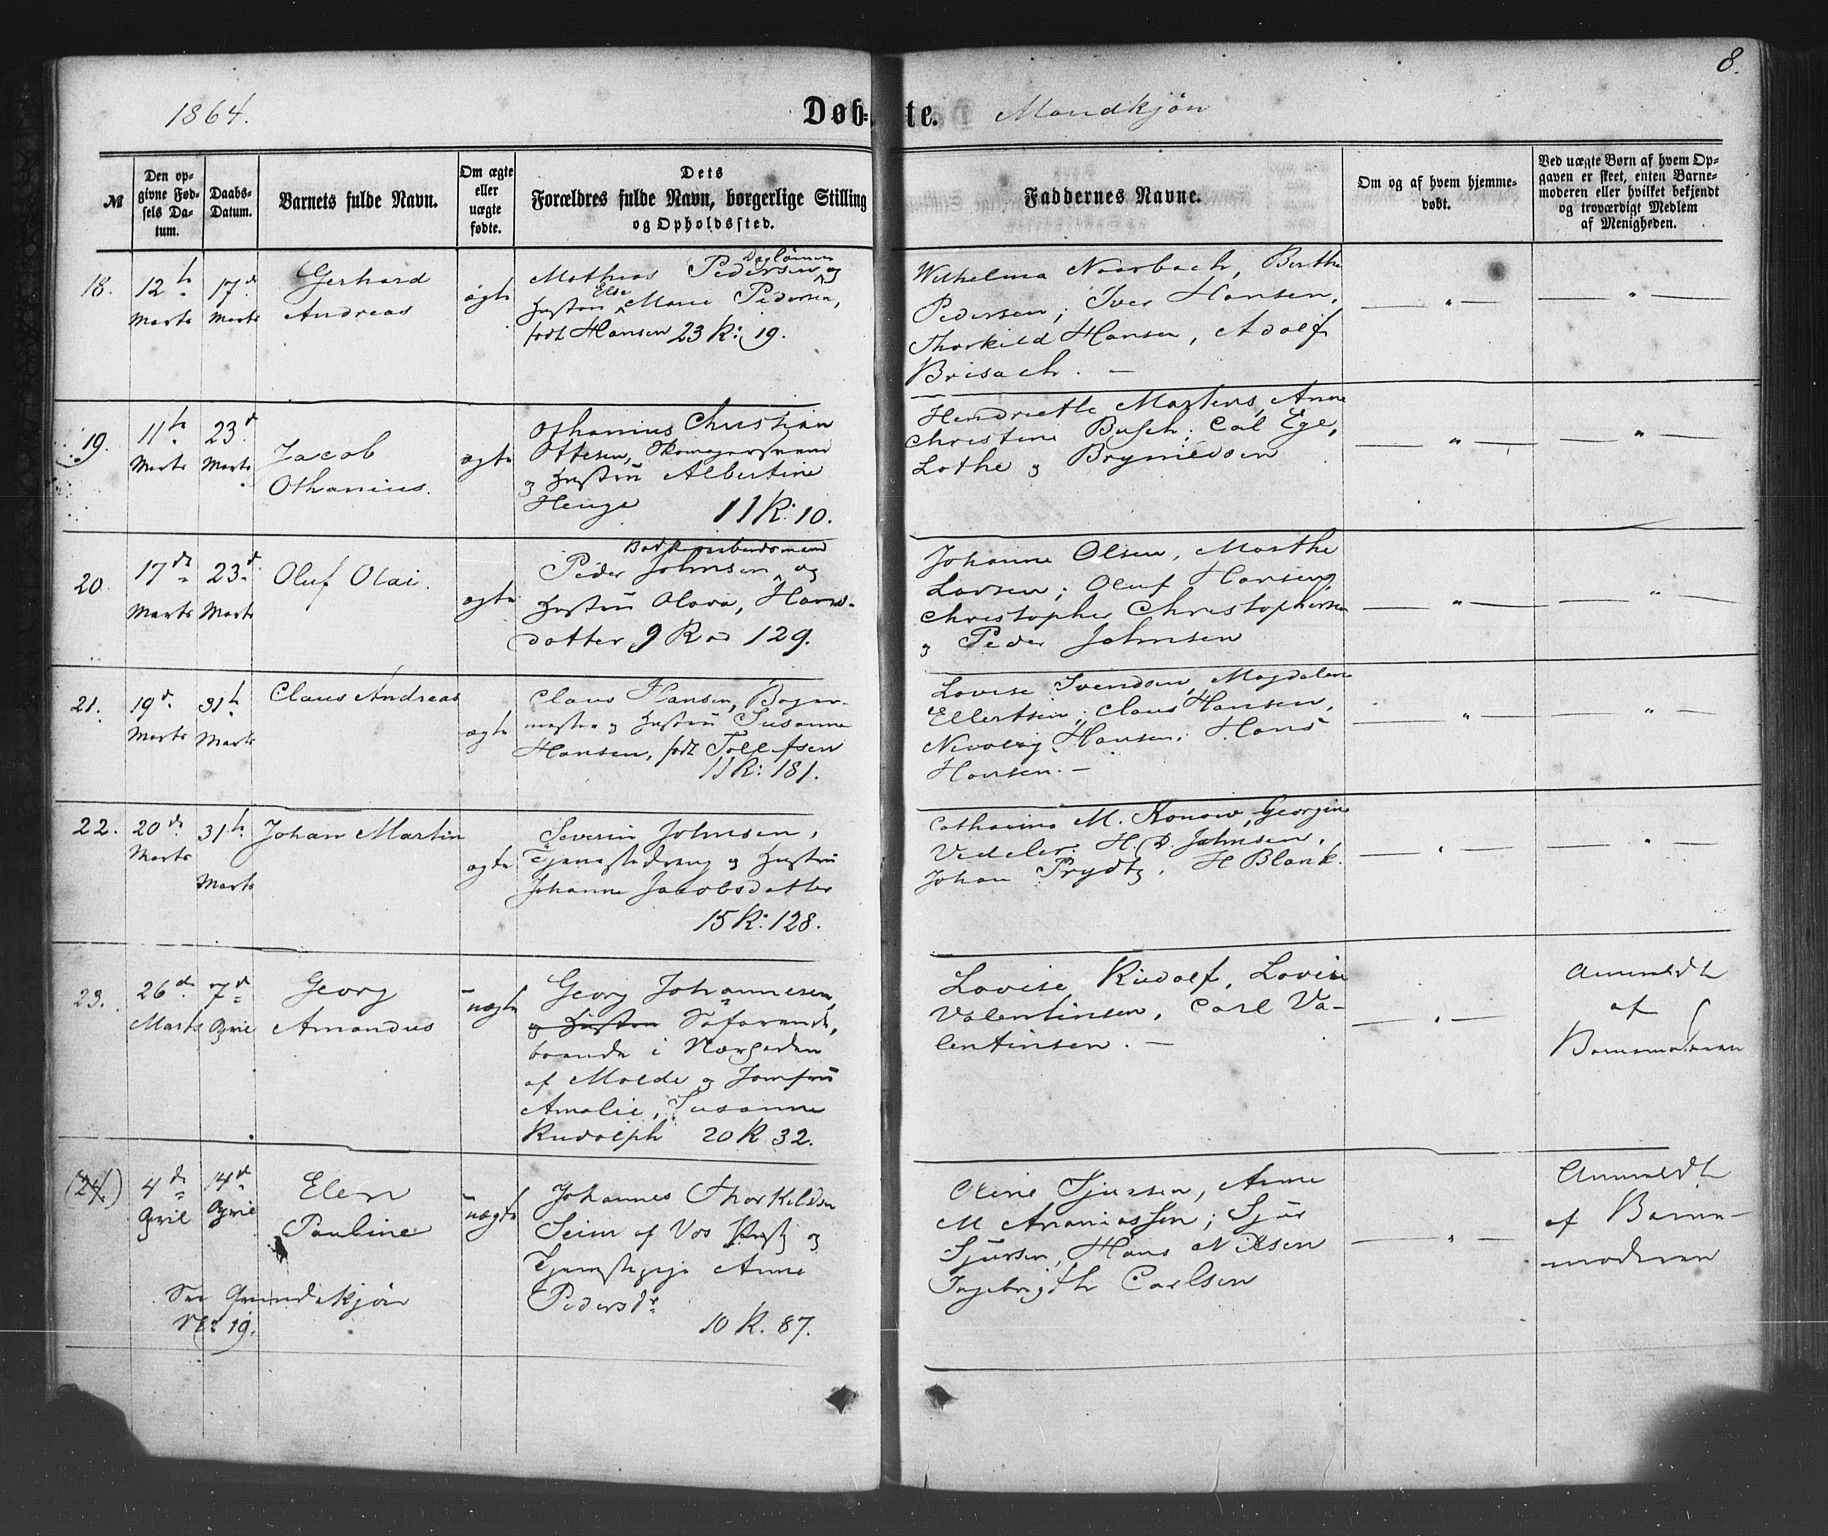 8.
1864.
Døb- te. Mandkjøn
№
Den opgivne Fødsels Datum.
Daabs-Datum.
Barnets fulde Navn.
Om ægte eller uægte fødte.
Dets Forældres fulde Navn, borgerlige Stilling og Opholdssted.
Faddernes Navne.
Om og af hvem hjemmedøbt.
Ved uægte Børn af hvem Opgaven er skeet, enten Barnemoderen eller hvilket bekjendt og troværdigt Medlem af Menigheden.
18.
12te Marts
17de Marts
Gerhard
Andreas
ægte
Daglønner
Mathias Pedersen og
Else
Hustru Marie Pedersen,
født Hansen 23 R: 19.
Wilhelmina Noorbach, Berthe
Pedersen; Iver Hansen,
Thorkild Hansen, Adolf
Brisach. —
— " —
— " —
19.
11te Marts
23de Marts
Jacob
Othanius.
ægte
Othanius Christian
Ottesen, Skomagersvend
og Hustru Albertine
Henge 11 R: 10.
Hendriette Martens, Anne
Christine Busch; Carl Ege,
Lothe og Brynildsen
— " —
— " —
20.
17de Marts
23de Marts
Oluf Olai.
ægte
Peder Johnsen, og
Hustru Olava, Hans-
datter, 9 Rod 129.
Johanne Olsen, Marthe
Larsen; Oluf Hansen,
Christopher Christophersen
og Peder Johnsen
— " —
— " —
21.
19de Marts
31te Marts
Claus Andreas
ægte
Claus Hansen, Bager-
mester og Hustru Susanne
Hansen, født Tollefsen
11 R: 181.
Lovise Svendsen, Magdalene
Ellertsen; Claus Hansen,
Nicolay Hansen, Hans
Hansen. —
— " —
— " —
22.
20de Marts
31te Marts
Johan Martin
ægte
Severin Johnsen,
Tjenestedreng og Hustru
Johanne Jacobsdatter
15 R: 128.
Catharina M. Konow, Georgine
Vedeler. H. D. Jahnsen,
Johan Prydtz, H Blank.
— " —
— " —
23.
26de Marts
7de April
Georg
Amandus
uægte
Georg Johannesen,
og Hustru Søfarende,
boende i Nærheden
af Molde og Jomfru
Amalie, Susanne
Rudolph 20 R. 32.
Lovise Rudolf, Lovise
Valentinsen, Carl Va-
lentinsen. —
— " —
Anmeldt
af
Barnemoderen
(24)
4de April
14de April
Elen
Pauline
uægte
Johannes Thorkildsen
Seim af Vos Prstgj og
Tjenestepige Anne
Pedersdr
10 R. 87.
Oline Sjursen, Anne
M Ananiassen; Sjur
Sjursen, Hans Nilsen
Ingebrigth Carlsen
— " —
Anmeldt
af Barne-
moderen
See Qvindekjøn
No 19.